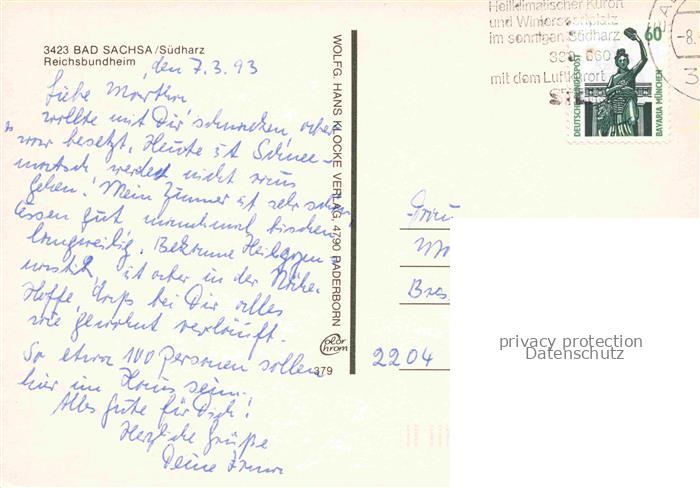 3423 BAD SACHSA/Südharz
Reichsbundheim
den 7.3.93
Liebe Martha
wollte mit Dir schnacken, aber
war besetzt. Heute ist Schnee-
matsch, werde nicht raus
gehen! Mein Zimmer ist sehr schön,
Essen gut manchmal bischen
langweilig. Bekomme
ist aber in der Nähe.
Hoffe, daß bei Dir alles
wie gewohnt verläuft.
So etwa 100 Personen sollen
hier im Haus sein!
Alles Gute für Dich!
Herzliche Grüße
Deine
WOLFG. HANS KLOCKE VERLAG, 4790 PADERBORN
Color
chrom
379
Heilklimatischer Kurort
und Wintersportplatz
im sonnigen Südharz
mit dem Luftkurort
60
DEUTSCHE BUNDESPOST
BAVARIA MÜNCHEN
-8.
3
Frau
2204
privacy protection
Datenschutz